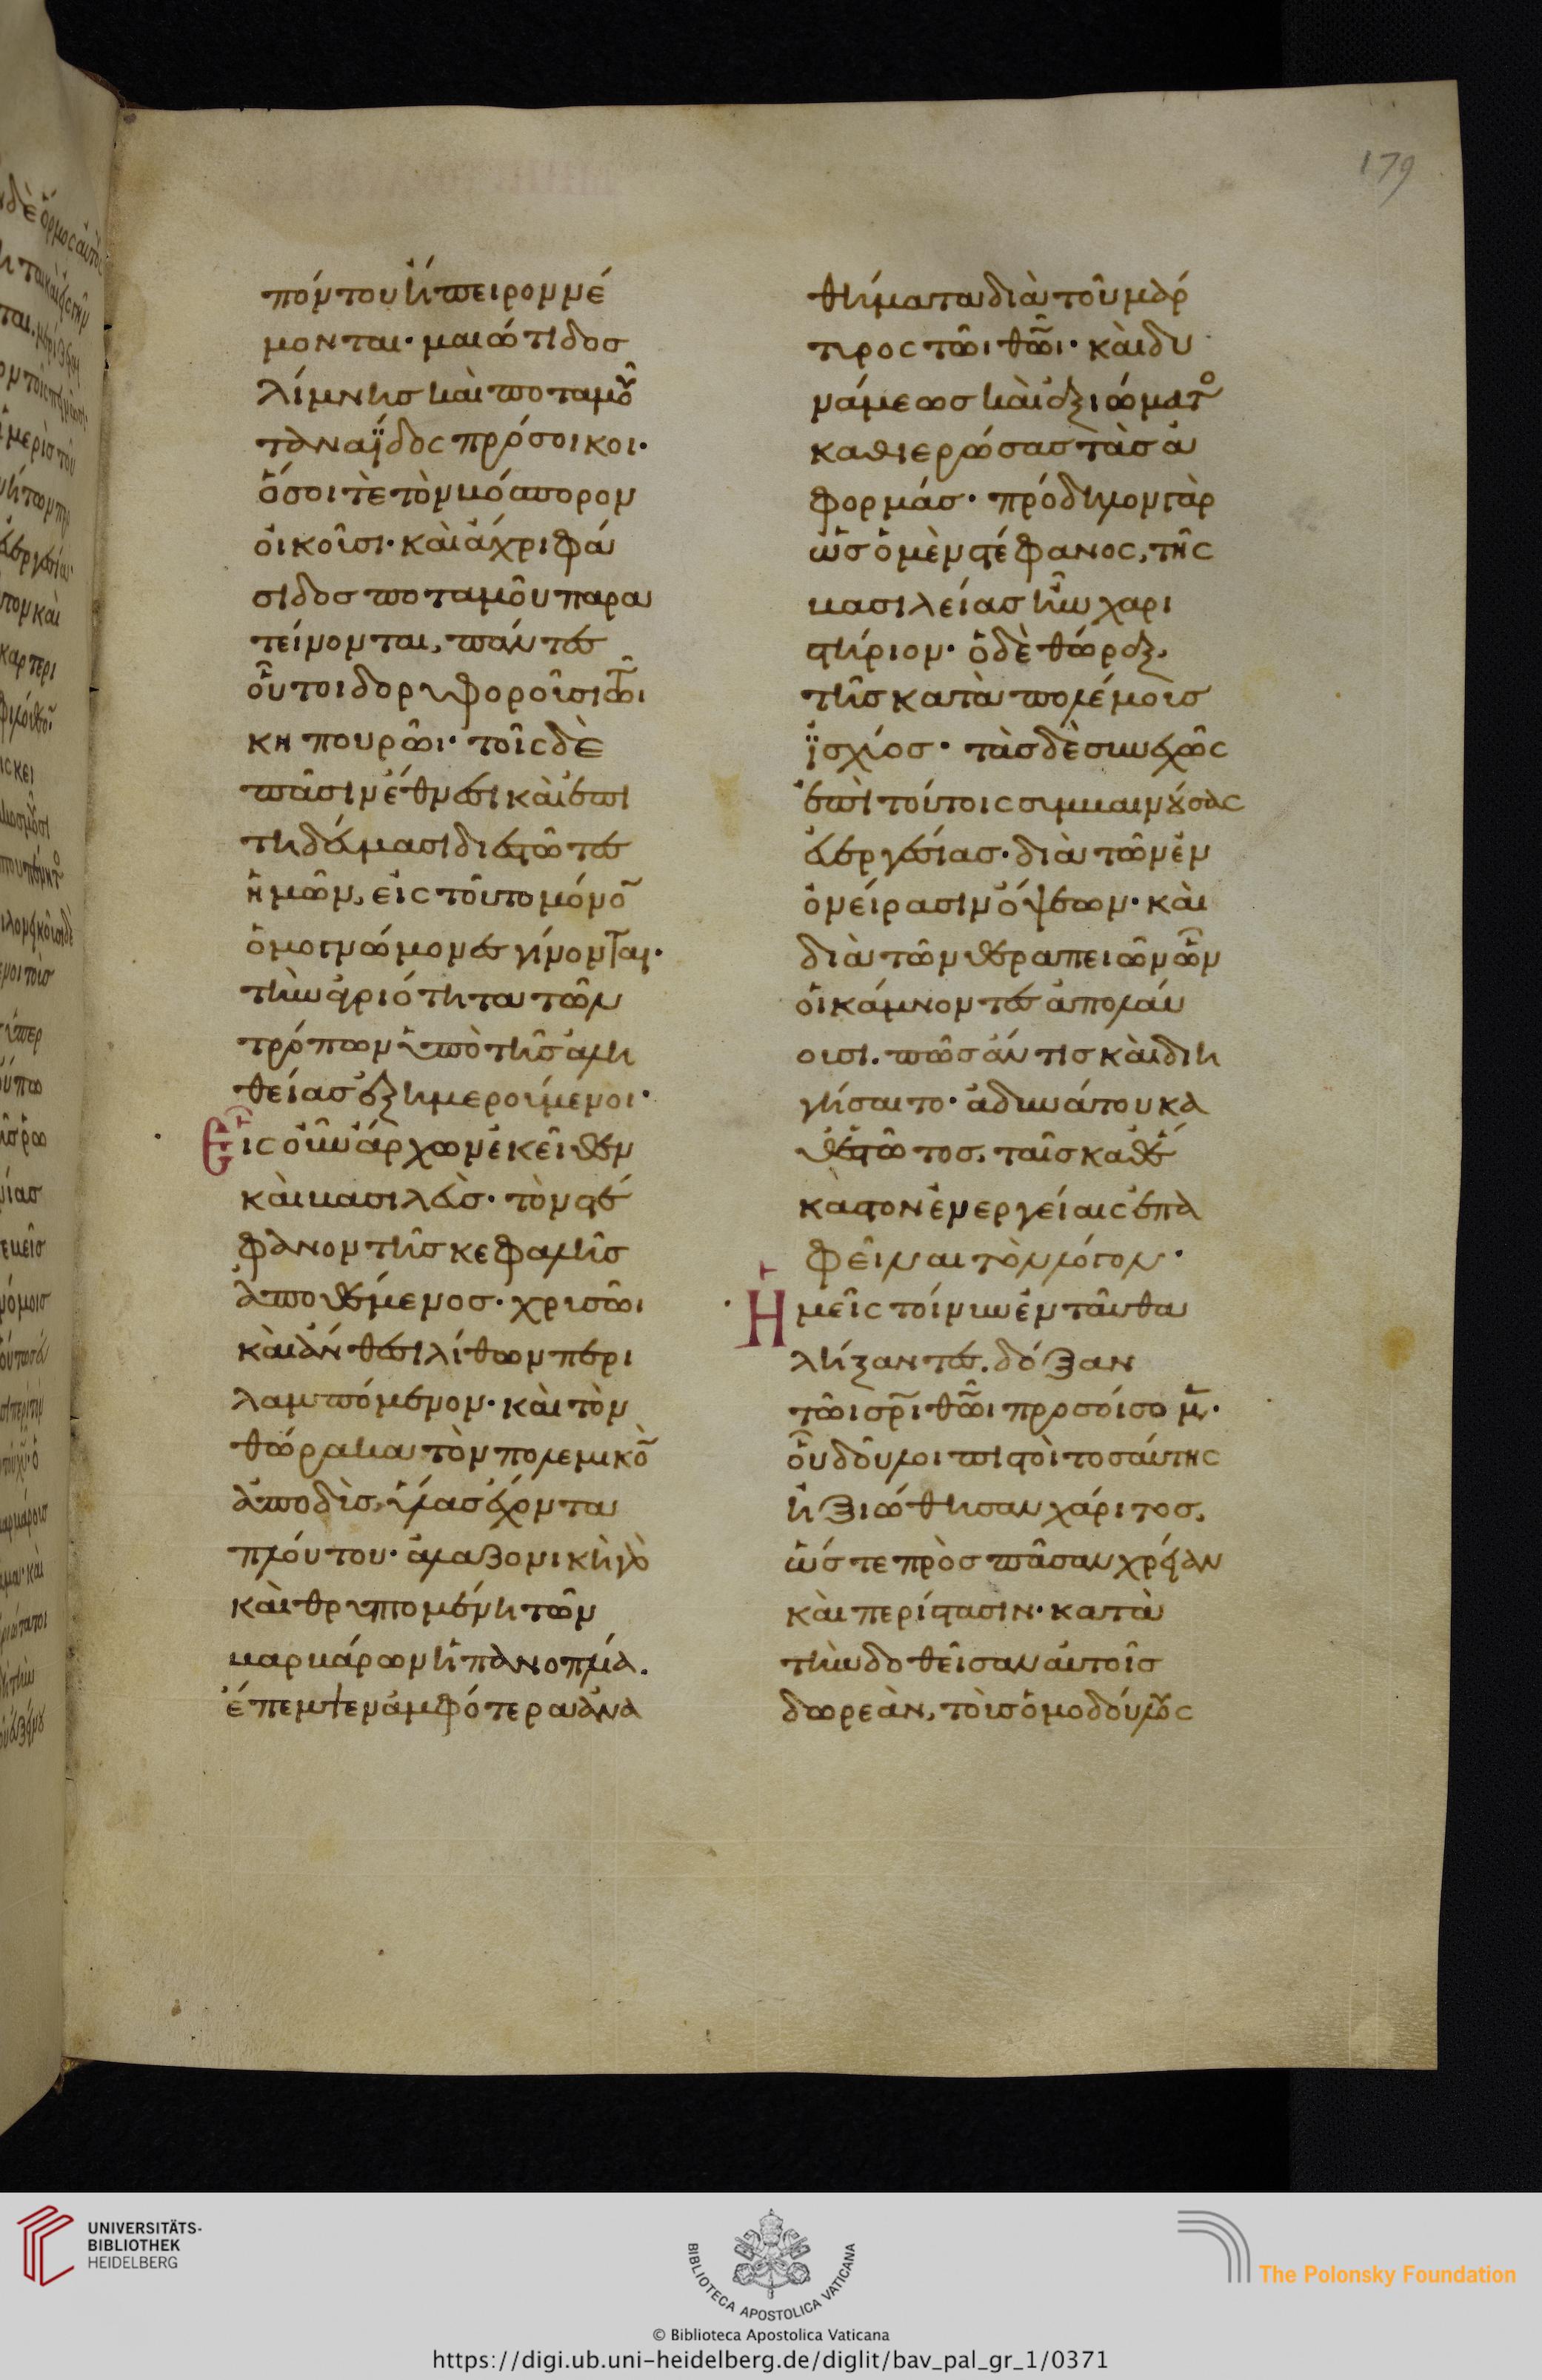 179
πόντου ἤπειρον νέ
μονται· μαιώτιδοσ
λίμνησ καὶ ποταμοῦ
ταναϊδος πρόσοικοι·
ὅσοι τὲ τὸν βόσπορον
οἰκοῦσι· καὶ ἄχρι φά
σιδοσ ποταμοῦ παρα
τείνονται, πάντεσ
οὗτοι δορυφοροῦσι τῶι
κηπουρῶι· τοῖς δὲ
πᾶσιν ἔθνεσι καὶ ἐπι
τηδεύμασι διεστῶτεσ
ἡμῶν, εἰς τοῦτο μόνο̄
ὁμογνώμονεσ γίνονται·
τὴν ἀγριότητα τῶν
τρόπων ὑπὸ τῆσ ἀλη
θείασ ἐξημερούμενοι·
Εἷς οὖν ἄρχων ἐκεῖθεν
καὶ βασιλεὺσ· τὸν στέ
φανον τῆσ κεφαλῆσ
ἀποθέμενοσ· χρυσῶι
καὶ ἄνθεσι λίθων περι
λαμπόμενον· καὶ τὸν
θώρακα τὸν πολεμικὸ̄
ἀποδὺσ, ὕλασ ἔχοντα
πλούτου· ἀλαζονικὴ γὰρ
καὶ θρυπτομένη τῶν
βαρβάρων ἡ πανοπλία.
ἔπεμψεν ἀμφότερα ἀνα
θήματα διὰ τοῦ μάρ
τυρος τῶι θῶι· καὶ δυ
νάμεωσ καὶ ἀξιώματο
καθιερώσασ τὰσ ἀ
φορμάσ· πρόδηλον γὰρ
ὡσ ὁ μὲν στέφανος, τῆς
βασιλείασ ἦν χαρι
στήριον· ὁ δὲ θώραξ,
τῆσ κατὰ πολέμουσ
ϊσχύοσ· τὰσ δὲ συνεχῶς
ἐπὶ τούτοις συμβαινούσας
ἐνεργείασ· διὰ τῶν ἐν
ὀνείρασιν ὄψεων· καὶ
διὰ τῶν θεραπειῶν ὧν
οἱ κάμνοντεσ ἀπολαύ
ουσι. πῶσ ἄν τισ καὶ διη
γήσαιτο· ἀδυνάτου κα
θεστῶτοσ, ταῖσ καθ' ἕ
καστον ἐνεργείαις ἐπα
φεῖναι τὸν λόγον·
Ἡμεῖς τοίνυν ἐνταῦθα
λήξαντεσ. δόξαν
τῶι σρ̄ι θῶι προσοίσομ̄.
οὗ δοῦλοι πιστοὶ τοσαύτης
ἠξιώθησαν χάριτοσ,
ὥστε πρὸσ πᾶσαν χρείαν
καὶ περίστασιν· κατὰ
τὴν δοθεῖσαν αὐτοῖσ
δωρεὰν, τοὺσ ὁμοδούλους
UNIVERSITÄTS-
BIBLIOTHEK
HEIDELBERG
BIBLIOTECA APOSTOLICA VATICANA
The Polonsky Foundation
© Biblioteca Apostolica Vaticana
https://digi.ub.uni-heidelberg.de/diglit/bav_pal_gr_1/0371